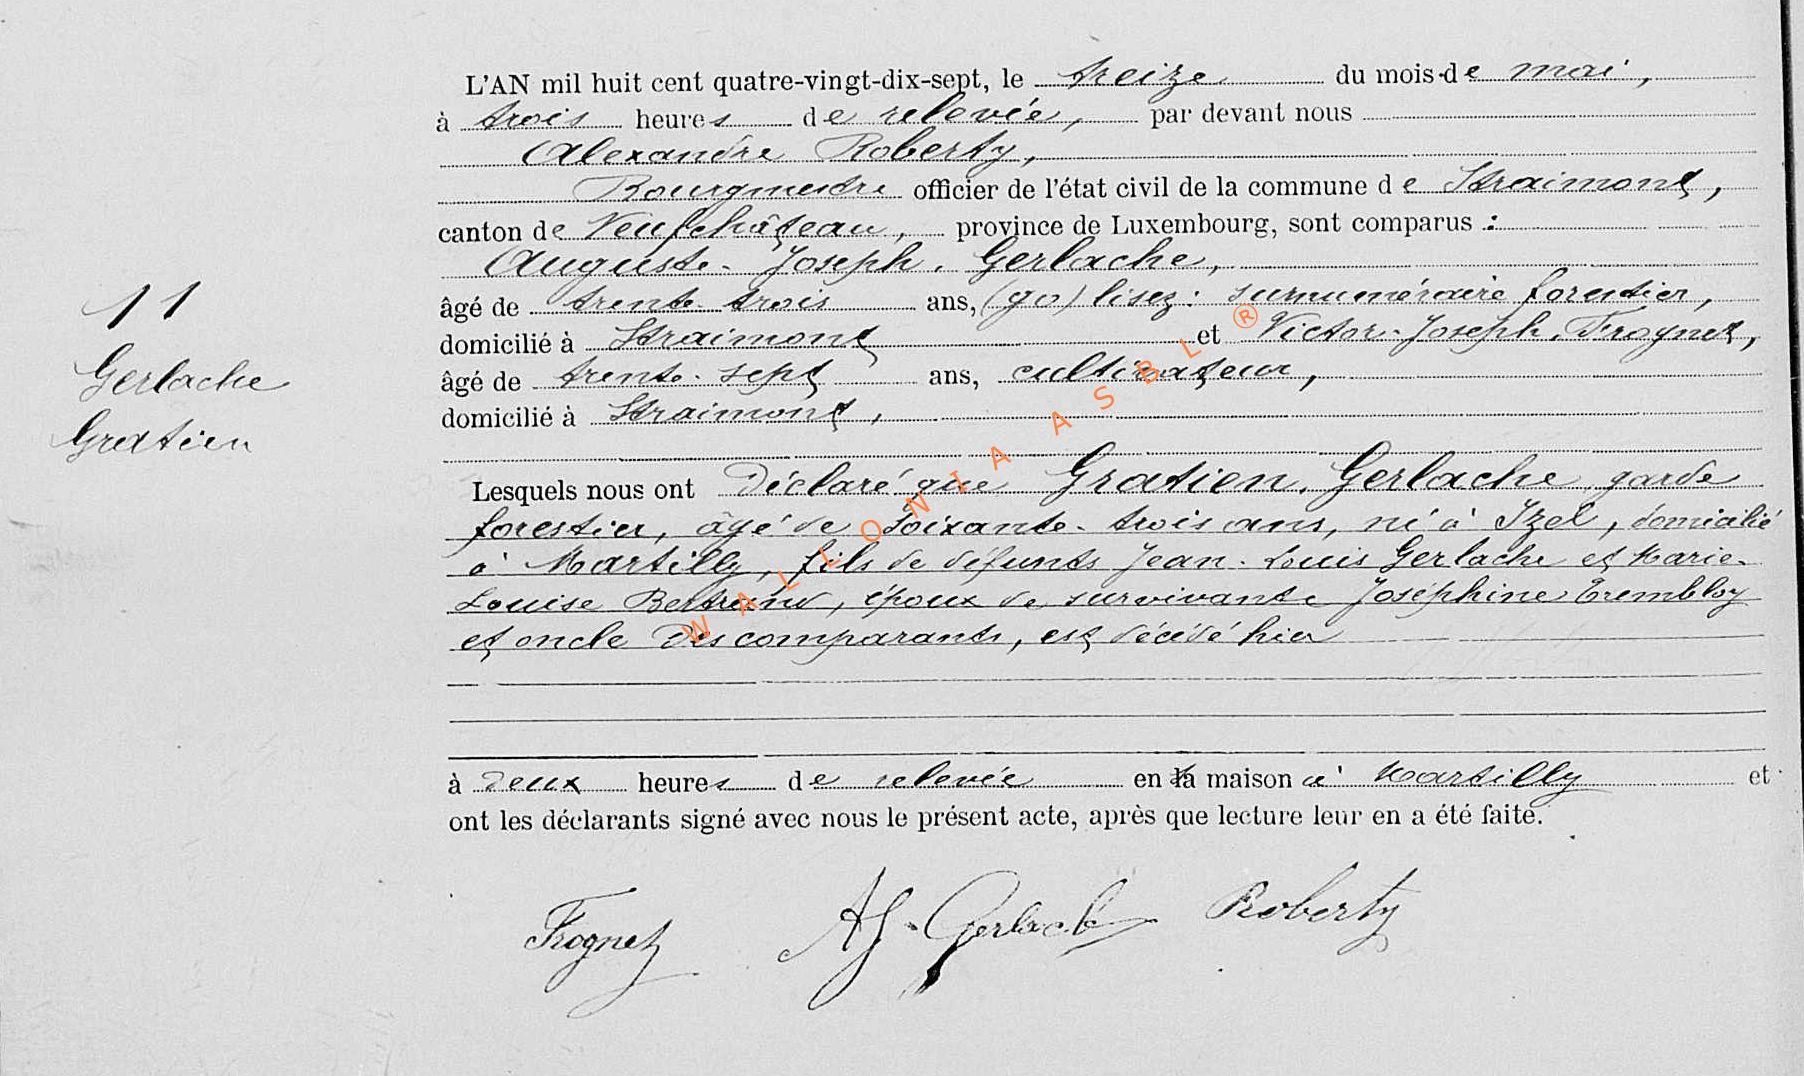 L'AN mil huit cent quatre-vingt-dix-sept, le treize du mois de mai,
à trois heures de relevée, par devant nous
Alexandre Roberty,
Bourgmestre officier de l'état civil de la commune de Straimont,
canton de Neufchâteau, province de Luxembourg, sont comparus :
Auguste-Joseph. Gerlache,
âgé de trente-trois ans, (go) lisez: surnuméraire forestier,
domicilié à Straimont et Victor-Joseph. Frognet,
âgé de trente-sept ans, cultivateur,
domicilié à Straimont,
11
Gerlache
Gratien
Lesquels nous ont déclaré que Gratien. Gerlache, garde
forestier, âgé de soixante-trois ans, né à Izel, domicilié
à Martilly, fils de défunts Jean-Louis Gerlache et Marie-
Louise Bertrand, époux de survivante Joséphine Trembloy
et oncle des comparants, est décédé hier
à deux heures de relevée en la maison à Martilly et
ont les déclarants signé avec nous le présent acte, après que lecture leur en a été faite.
Frognet AJ. Gerlache Roberty
WALLONIA ASBL ®